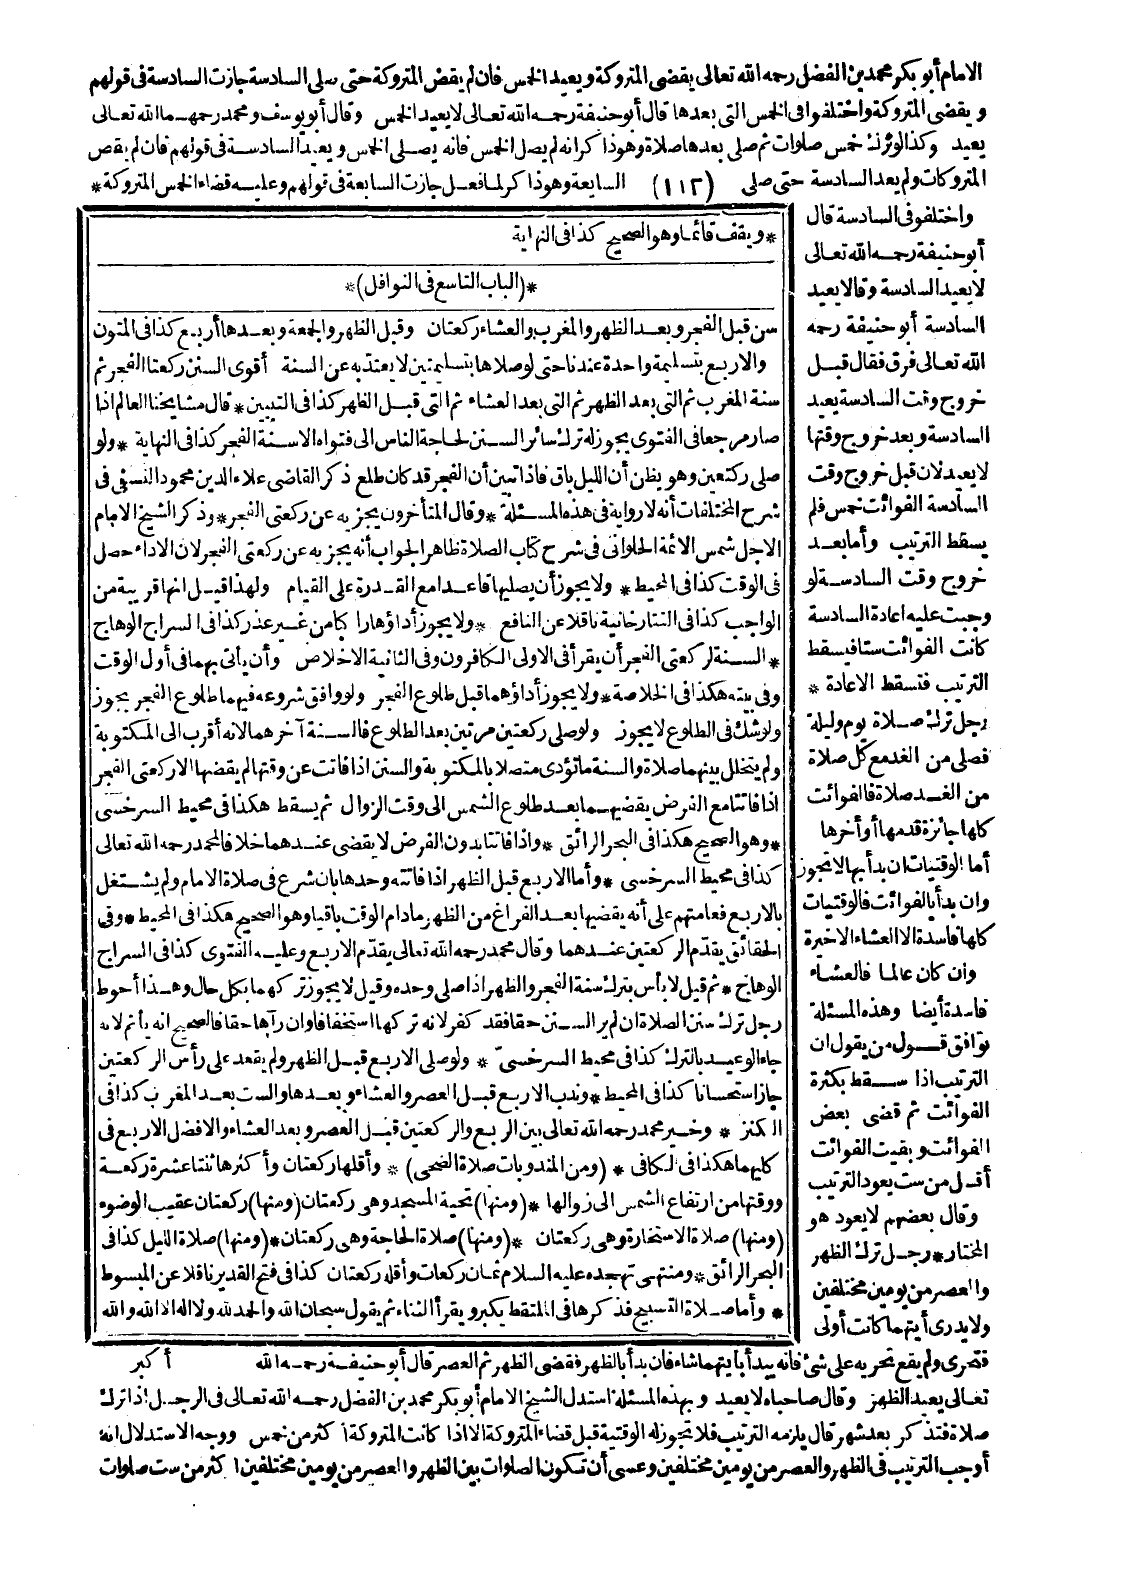 الامام أبو بكر محمد بن الفضل رحمه الله تعالى يقضى المتروكة ويعيد الخمس فان لم يقض المتروكة حتى صلى السادسة جازت السادسة فى قولهم
ويقضى المتروكة واختلفوا فى الخمس التى بعدها قال أبو حنيفة رحمه الله تعالى لا يعيد الخمس وقال أبو يوسف ومحمد رحمهما الله تعالى
يعيد وكذا لو ترك خمس صلوات ثم صلى بعدها صلاة وهو ذاكر انه لم يصل الخمس فانه يصلى الخمس ويعيد السادسة فى قولهم فان لم يقض
المتروكات ولم يعد السادسة حتى صلى (١١٢) السابعة وهو ذاكر لما فعل جازت السابعة فى قولهم وعليه قضاء الخمس المتروكة *
واختلفوا فى السادسة قال
أبو حنيفة رحمه الله تعالى
لا يعيد السادسة وقالا يعيد
السادسة أبو حنيفة رحمه
الله تعالى فرق فقال قبل
خروج وقت السادسة يعيد
السادسة وبعد خروج وقتها
لا يعيد لان قبل خروج وقت
السادسة الفوائت خمس فلم
يسقط الترتيب وأما بعد
خروج وقت السادسة لو
وجبت عليه اعادة السادسة
كانت الفوائت ستا فيسقط
الترتيب فتسقط الاعادة *
رجل ترك صلاة يوم وليلة
فصلى من الغد مع كل صلاة
من الغد صلاة فالفوائت
كلها جائزة قدمها أو أخرها
أما الوقتيات ان بدأ بها لا تجوز
وان بدأ بالفوائت فالوقتيات
كلها فاسدة الا العشاء الاخيرة
وان كان عالما فالعشاء
فاسدة أيضا وهذه المسئلة
توافق قول من يقول ان
الترتيب اذا سقط بكثرة
الفوائت ثم قضى بعض
الفوائت وبقيت الفوائت
أقل من ست يعود الترتيب
وقال بعضهم لا يعود هو
المختار * رجل ترك الظهر
والعصر من يومين مختلفين
ولا يدرى أيتهما كانت أولى
* ويقف قائما وهو الصحيح كذا فى النهاية
*(الباب التاسع فى النوافل)*
سن قبل الفجر وبعد الظهر والمغرب والعشاء ركعتان وقبل الظهر والجمعة وبعدها أربع كذا فى المتون
والاربع بتسليمة واحدة عندنا حتى لو صلاها بتسليمتين لا يعتد به عن السنة أقوى السنن ركعتا الفجر ثم
سنة المغرب ثم التى بعد الظهر ثم التى بعد العشاء ثم التى قبل الظهر كذا فى التبيين * قال مشايخنا العالم اذا
صار مرجعا فى الفتوى يجوز له ترك سائر السنن لحاجة الناس الى فتواه الا سنة الفجر كذا فى النهاية * ولو
صلى ركعتين وهو يظن أن الليل باق فاذا تبين أن الفجر قد كان طلع ذكر القاضى علاء الدين محمود النسفى فى
شرح المختلفات أنه لا رواية فى هذه المسئلة * وقال المتأخرون يجزيه عن ركعتى الفجر * وذكر الشيخ الامام
الاجل شمس الائمة الحلوانى فى شرح كتاب الصلاة ظاهر الجواب أنه يجزيه عن ركعتى الفجر لان الاداء حصل
فى الوقت كذا فى المحيط * ولا يجوز أن يصليها قاعدا مع القدرة على القيام ولهذا قيل انها قريبة من
الواجب كذا فى التتارخانية ناقلا عن النافع * ولا يجوز أداؤها راكبا من غير عذر كذا فى السراج الوهاج
* السنة لركعتى الفجر أن يقرأ فى الاولى الكافرون وفى الثانية الاخلاص وأن يأتى بهما فى أول الوقت
وفى بيته هكذا فى الخلاصة * ولا يجوز أداؤهما قبل طلوع الفجر ولو وافق شروعه فيهما طلوع الفجر يجوز
ولو شك فى الطلوع لا يجوز ولو صلى ركعتين مرتين بعد الطلوع فالسنة آخرهما لانه أقرب الى المكتوبة
ولم يتخلل بينهما صلاة والسنة ما تؤدى متصلا بالمكتوبة والسنن اذا فاتت عن وقتها لم يقضها الا ركعتى الفجر
اذا فاتتا مع الفرض يقضيهما بعد طلوع الشمس الى وقت الزوال ثم يسقط هكذا فى محيط السرخسى
* وهو الصحيح هكذا فى البحر الرائق * واذا فاتتا بدون الفرض لا يقضى عندهما خلافا لمحمد رحمه الله تعالى
كذا فى محيط السرخسى * وأما الاربع قبل الظهر اذا فاتته وحدها بان شرع فى صلاة الامام ولم يشتغل
بالاربع فعامتهم على أنه يقضيها بعد الفراغ من الظهر ما دام الوقت باقيا وهو الصحيح هكذا فى المحيط * وفى
الحقائق يقدم الركعتين عندهما وقال محمد رحمه الله تعالى يقدم الاربع وعليه الفتوى كذا فى السراج
الوهاج * ثم قيل لا بأس بترك سنة الفجر والظهر اذا صلى وحده وقيل لا يجوز تركهما بكل حال وهذا أحوط
رجل ترك سنن الصلاة ان لم ير السنن حقا فقد كفر لانه تركها استخفافا وان رآها حقا فالصحيح انه يأثم لانه
جاء الوعيد بالترك كذا فى محيط السرخسى * ولو صلى الاربع قبل الظهر ولم يقعد على رأس الركعتين
جاز استحسانا كذا فى المحيط * وندب الاربع قبل العصر والعشاء وبعدها والست بعد المغرب كذا فى
الكنز * وخير محمد رحمه الله تعالى بين الاربع والركعتين قبل العصر وبعد العشاء والافضل الاربع فى
كليهما هكذا فى الكافى * (ومن المندوبات صلاة الضحى) * وأقلها ركعتان وأكثرها ثنتا عشرة ركعة
ووقتها من ارتفاع الشمس الى زوالها * (ومنها) تحية المسجد وهى ركعتان (ومنها) ركعتان عقيب الوضوء
(ومنها) صلاة الاستخارة وهى ركعتان * (ومنها) صلاة الحاجة وهى ركعتان * (ومنها) صلاة الليل كذا فى
البحر الرائق * ومنتهى تهجده عليه السلام ثمان ركعات وأقله ركعتان كذا فى فتح القدير ناقلا عن المبسوط
* وأما صلاة التسبيح فذكرها فى الملتقط يكبر ويقرأ الثناء ثم يقول سبحان الله والحمد لله ولا اله الا الله والله
أكبر
فتحرى ولم يقع تحريه على شئ فانه يبدأ بأيتهما شاء فان بدأ بالظهر فقضى الظهر ثم العصر قال أبو حنيفة رحمه الله
تعالى يعيد الظهر وقال صاحباه لا يعيد وبهذه المسئلة استدل الشيخ الامام أبو بكر محمد بن الفضل رحمه الله تعالى فى الرجل اذا ترك
صلاة فتذكر بعد شهر قال يلزمه الترتيب فلا تجوز له الوقتية قبل قضاء المتروكة الا اذا كانت المتروكة أكثر من خمس ووجه الاستدلال انه
أوجب الترتيب فى الظهر والعصر من يومين مختلفين وعسى أن تكون الصلوات بين الظهر والعصر من يومين مختلفين أكثر من ست صلوات